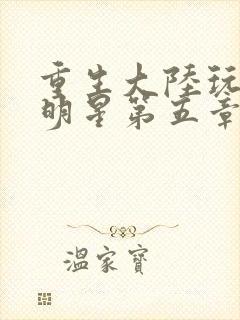 重生大陸玩
明星第五章
溫家寶